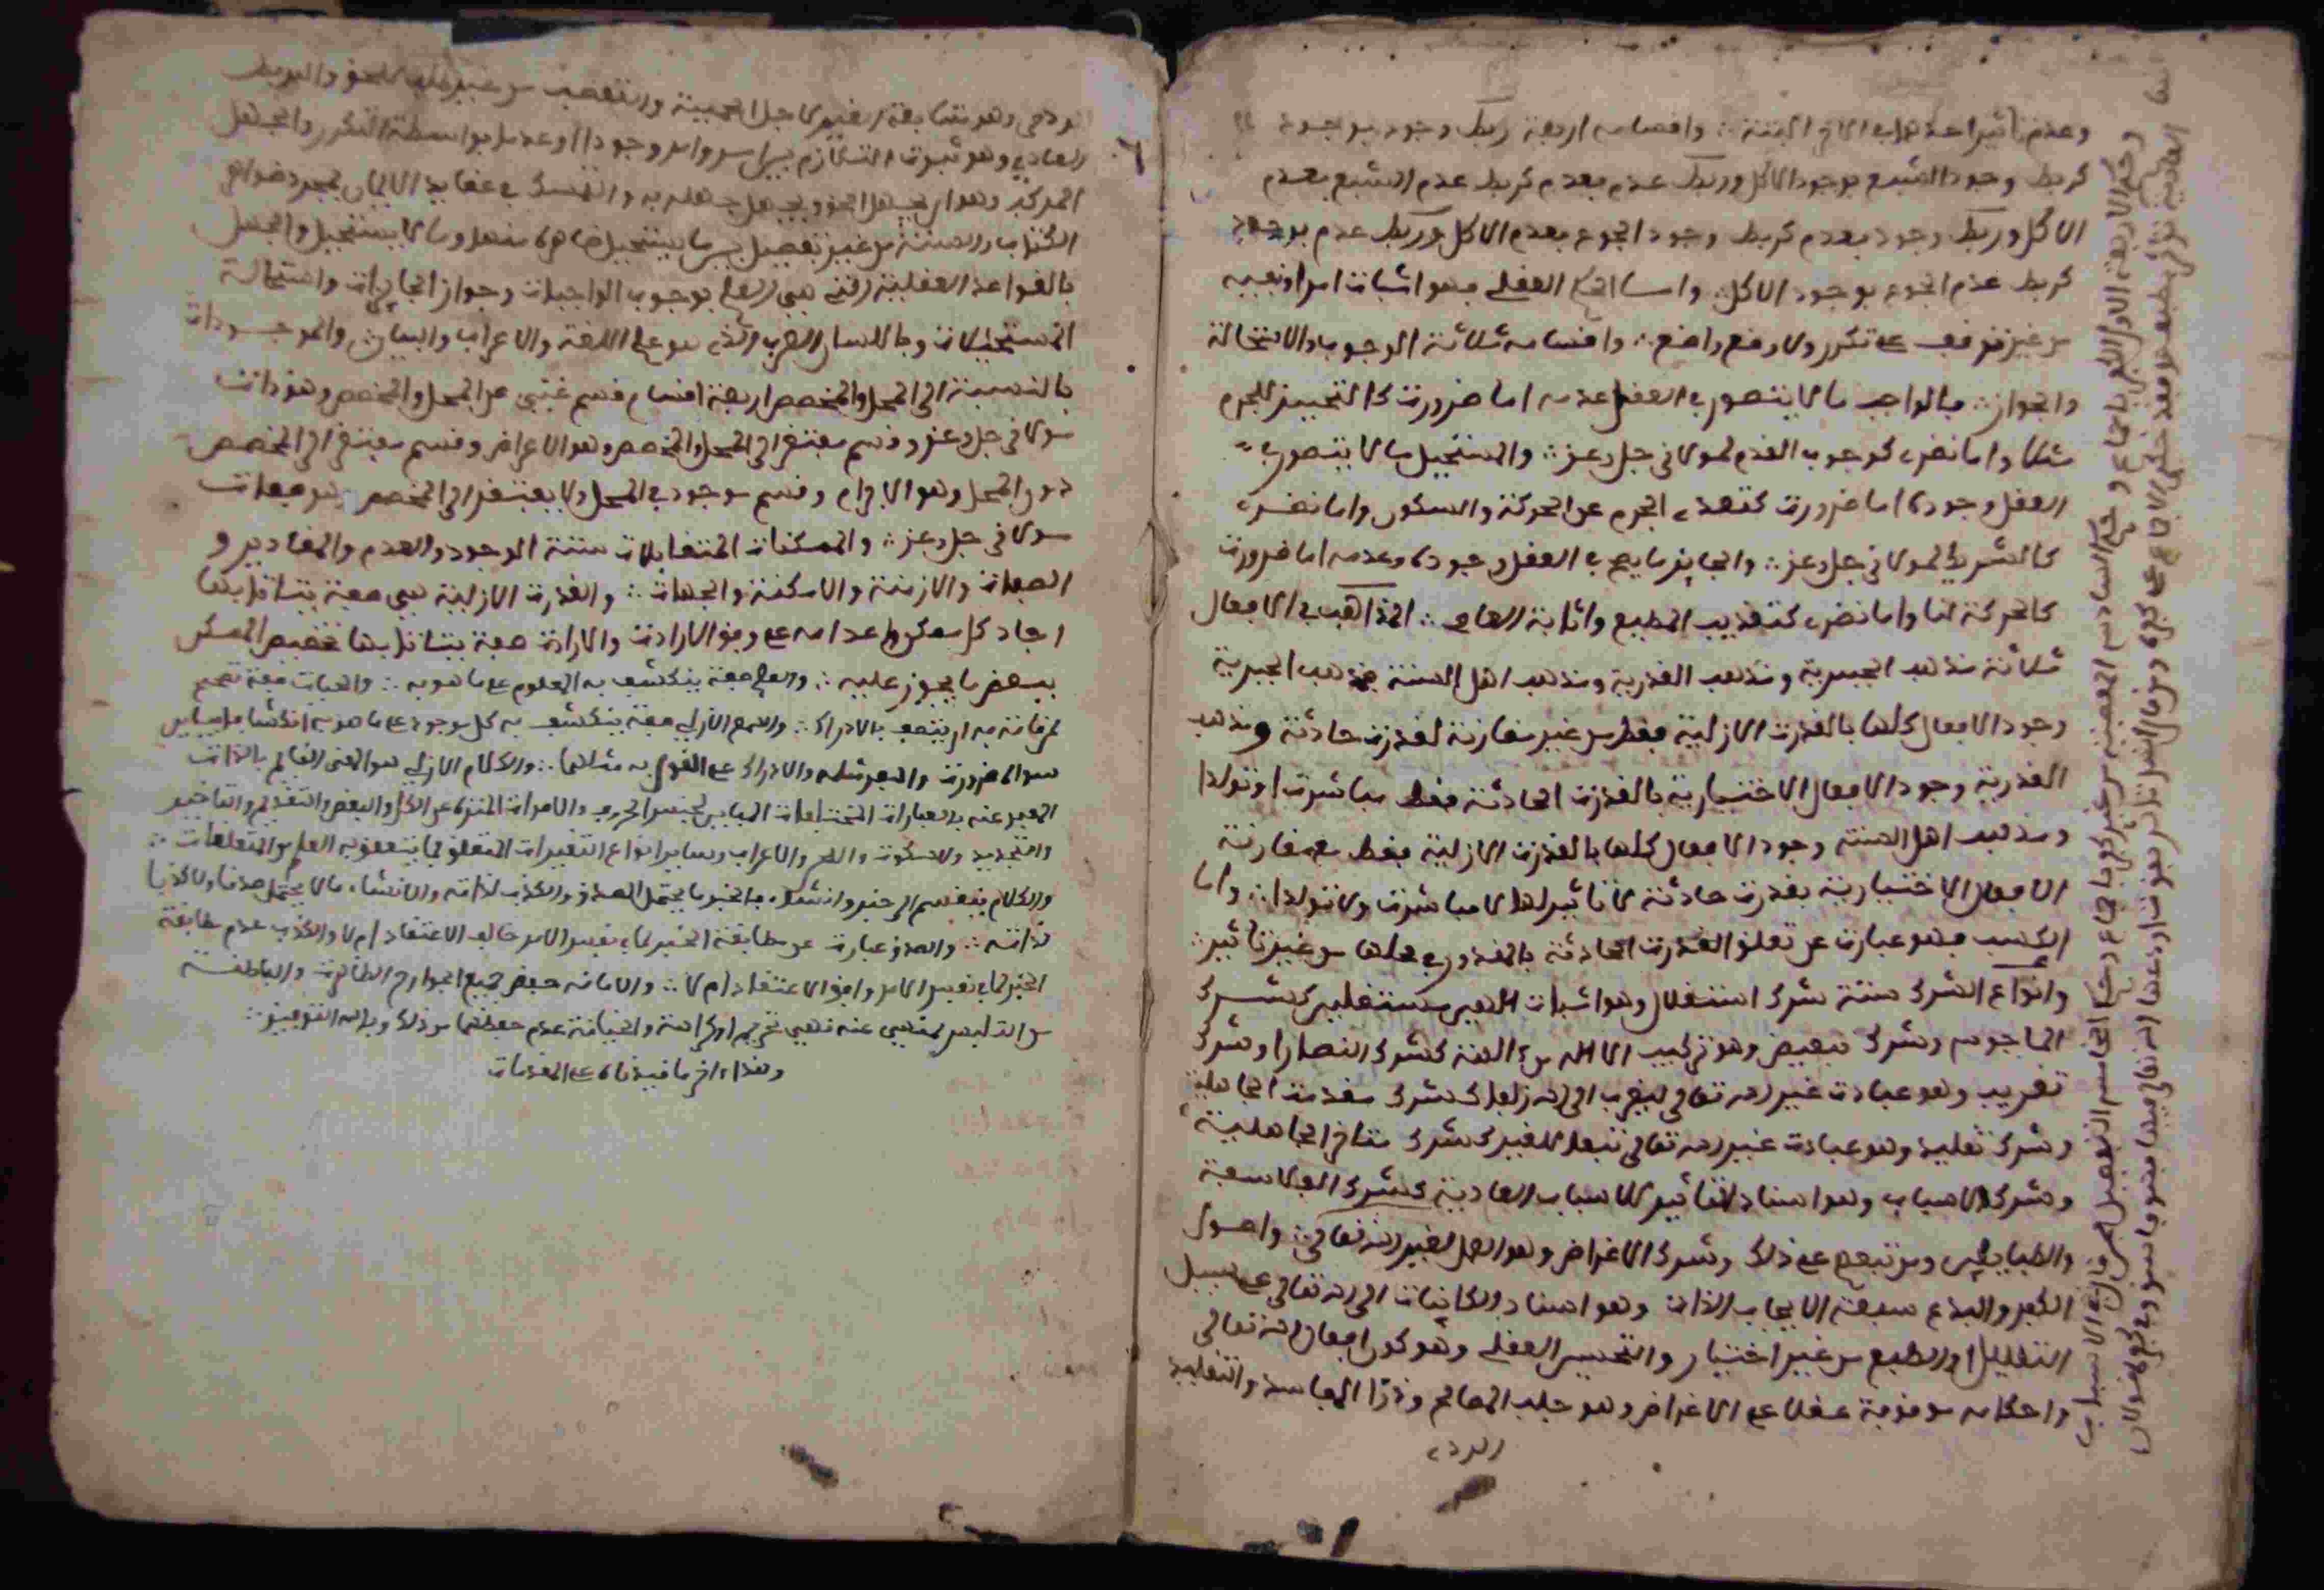 وعدم تأثير احدهما في الاخر البتة ∴ واقسامه اربعة ربط وجود بوجود
كربط وجود الشبع بوجود الاكل وربط عدم بعدم كربط عدم الشبع بعدم
الاكل وربط وجود بعدم كربط وجود الجوع بعدم الاكل وربط عدم بوجود
كربط عدم الجوع بوجود الاكل ∴ واما الحكم العقلي فهو اثبات امر او نفيه
من غير توقف على تكرر ولا وضع واضع ∴ واقسامه ثلاثة الوجوب والاستحالة
والجواز ∴ فالواجب ما لا يتصور في العقل عدمه اما ضرورة كالتحيز للجرم
مثلا واما نظرى كوجوب القدم لمولانا جل وعز ∴ والمستحيل ما لا يتصور في
العقل وجوده اما ضرورة كتعرى الجرم عن الحركة والسكون واما نظرى
كالشريك لمولانا جل وعز ∴ والجايز ما يصح في العقل وجوده وعدمه اما ضرورة
كالحركة لنا واما نظرى كتعذيب المطيع واثابة العاصي ∴ المذاهب في الافعال
ثلاثة مذهب الجبرية ومذهب القدرية ومذهب اهل السنة فمذهب الجبرية
وجود الافعال كلها بالقدرة الازلية فقط من غير مقارنة لقدرة حادثة ومذهب
القدرية وجود الافعال الاختيارية بالقدرة الحادثة فقط مباشرة او تولدا
ومذهب اهل السنة وجود الافعال كلها بالقدرة الازلية فقط مع مقارنة
الافعال الاختيارية بقدرة حادثة لا تاثير لها لا مباشرة ولا تولدا ∴ واما
الكسب فهو عبارة عن تعلق القدرة الحادثة بالمقدور في محلها من غير تاثير ∴
وانواع الشرك ستة شرك استقلال وهو اثبات الهين مستقلين كشرك
الماجوس وشرك تبعيض وهو تركيب الاله من الهة كشرك النصارا وشرك
تقريب وهو عبادة غير الله تعالى ليقرب الى الله زلفا كشرك متقدمة الجاهلية
وشرك تقليد وهو عبادة غير الله تعالى تبعا للغير كشرك متاخر الجاهلية
وشرك الاسباب وهو اسناد التاثير للاسباب العادية كشرك الفلاسفة
والطبايعين ومن تبعهم على ذلك وشرك الاغراض وهو العمل لغير الله تعالى ∴ واصول
الكفر والبدع سبعة الايجاب الذات وهو اسناد الكائنات الى الله تعالى على سبيل
التعليل او الطبع من غير اختيار والتحسين العقلي وهو كون افعال الله تعالى
واحكامه موقوفة عقلا على الاغراض وهو جلب المصالح ودرا المفاسد والتقليد
الردى
وحكم الاربعة الاول الكفر باجماع وحكم السادس المعصية من غير كفر باجماع وحكم الخامس التفصيل فمن قال في الاسباب
العادية انها تؤثر بطبعها فقد حكي الاجماع على كفره ومن قال انها تؤثر بقوة اودعها الله تعالى فيها فهو فاسق وفي كفره قولان
الردى وهو متابعة الغير لاجل الحمية والتعصب من غير طلب للحق والربط
العادي وهو ثبوت التلازم بين امر وامر وجودا او عدما بواسطة التكرر والجهل
المركب وهو ان يجهل الحق ويجهل جهله به والتمسك في عقايد الايمان بمجرد ظواهر
الكتاب والسنة من غير تفصيل بين ما يستحيل ظاهره منها وما لا يستحيل والجهل
بالقواعد العقلية التي هي العلم بوجوب الواجبات وجواز الجايزات واستحالة
المستحيلات وباللسان العرب الذي هو علم اللغة والاعراب والبيان ∴ والموجودات
بالنسبة الى المحل والمخصص اربعة اقسام قسم غني عن المحل والمخصص وهو ذات
مولانا جل وعز وقسم مفتقر الى المحل والمخصص وهو الاعراض وقسم مفتقر الى المخصص
دون المحل وهو الاجرام وقسم موجود في المحل ولا يفتقر الى المخصص وهو صفات
مولانا جل وعز ∴ والممكنات المتقابلات ستة الوجود والعدم والمقادير و
الصفات والازمنة والامكنة والجهات ∴ والقدرة الازلية هي صفة يتاتى بها
ايجاد كل ممكن واعدامه على وفق الارادة والارادة صفة يتاتى بها تخصيص الممكن
ببعض ما يجوز عليه ∴ والعلم صفة ينكشف به المعلوم على ما هو به ∴ والحيات صفة تصحح
لمن قامت به ان يتصف بالادراك ∴ والسمع الازلي صفة ينكشف به كل موجود على ما هو به انكشافا يباين
سواه ضرورة والبصر مثله والادراك على القول به مثلهما ∴ والكلام الازلي هو المعنى القايم بالذات
المعبر عنه بالعبارات المختلفات المباين لجنس الحروف والاصوات المنزه عن الكل والبعض والتقديم والتاخير
والتجديد والسكوت واللحن والاعراب وساير انواع التغيرات المتعلق بما يتعلق به العلم من المتعلقات ∴
والكلام ينقسم الى خبر وانشاء فالخبر ما يحتمل الصدق والكذب لذاته والانشاء ما لا يحتمل صدقا ولا كذبا
لذاته ∴ والصدق عبارة عن مطابقة الخبر لما في نفس الامر خالف الاعتقاد ام لا والكذب عدم مطابقة
الخبر لما في نفس الامر وافق الاعتقاد ام لا ∴ والامانة حفظ جميع الجوارح الظاهرة والباطنة
من التلبس بمنهي عنه نهي تحريم او كراهة والخيانة عدم حفظها من ذلك وبالله التوفيق ∴
وهذا اخر ما قيدناه على المقدمات